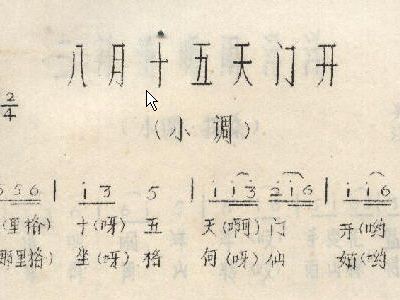 八月十五天门开
2/4
（小调）
5 5 6 | i 3 5 | i i 3 2 i 6 | i i 6
（里格）十（呀）五 天（啊）门 开（哟
那里格）坐（呀）格 何（呀）仙 姑（哟